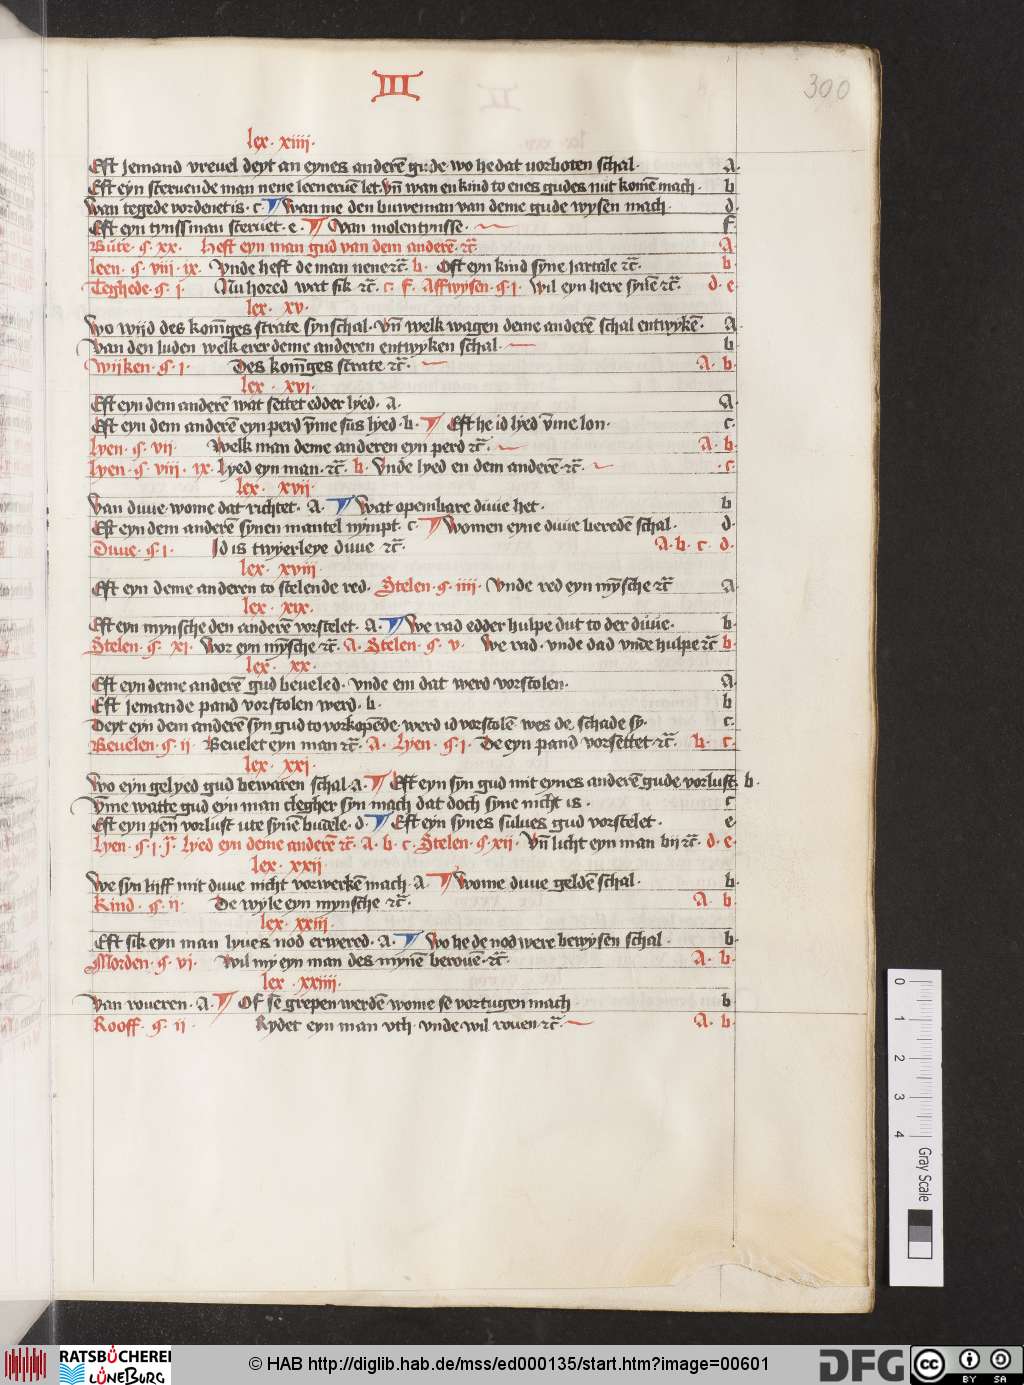 III
300
lex · xiiii ·
Eft jemand vrevel deyt an eynes anderē gude wo he dat vorboten schal · A ·
Eft eyn stervende man nene leenervē let · Vn̄ wan en kind to enes gudes nut komē mach · b
Wan tegede vordenet is · c · ¶ Wan me den buweman van deme gude wysen mach · d ·
Eft eyn tynssman stervet · e · ¶ Van molentynsse · f
Bute · § · xx · Heft eyn man gud van dem anderē · rc̄ A
leen · § · viii · ix · Vnde heft de man nene rc̄ · b · Oft eyn kind syne jartale rc̄ · b ·
Teghede · § · j · Nu hored wat sik rc̄ · c · f · Affwysen · § · j · wil eyn here synē rc̄ · d · e
lex · xv ·
Wo wijd des konīges strate syn schal · Vn̄ welk wagen deme anderē schal entwykē · A ·
Van den luden welk erer deme anderen entwyken schal · b
Wijken · § · j · Des konīges strate rc̄ · A · b ·
lex · xvi ·
Eft eyn dem anderē wat settet edder lyed · A · A
Eft eyn dem anderē eyn perd v̄me sus lyed · b · ¶ Eft he id lyed v̄me lon · c ·
Lyen · § · vii Welk man deme anderen eyn perd rc̄ · A · b
Lyen · § · viii · ix · Lyed eyn man · rc̄ · b · Vnde lyed en dem anderē · rc̄ · c ·
lex · xvii ·
Van duve wome dat richtet · A · ¶ Wat openbare duve het · b
Eft eyn dem anderē synen mantel nympt · c · ¶ Women eyne duve beredē schal · d ·
Duve · § · j · Id is twyerleye duve rc̄ · A · b · c · d ·
lex · xviii
Eft eyn deme anderen to stelende red · Stelen · § · iiii · Vnde red eyn mȳsche rc̄ A
lex · xix ·
Eft eyn mynsche den anderē vorstelet · A · ¶ We rad edder hulpe dut to der duve · b ·
Stelen · § · xi · Wor eyn mȳsche · rc̄ · A · Stelen · § · v · We rad · vnde dad vnde hulpe rc̄ b ·
lex · xx ·
Eft eyn deme anderē gud beveled · vnde em dat werd vorstolen · A
Eft jemande pand vorstolen werd · b · b
Deyt eyn dem anderē syn gud to vorkopēde · werd id vorstolē wes de schade sy · c ·
Bevelen · § · ij · Bevelet eyn man rc̄ · A · Lyen · § · j · De eyn pand vorsettet rc̄ · b · c ·
lex · xxi ·
Wo eyn gelyed gud bewaren schal · A · ¶ Eft eyn syn gud mit eynes anderē gude vorlust · b ·
V̄me watte gud eyn man clegher syn mach dat doch syne nicht is · c
Eft eyn pen̄ vorlust ute synē budele · d · ¶ Eft eyn synes sulves gud vorstelet · e
Lyen · § · j · Lyed eyn deme anderē rc̄ · A · b · c · Stelen · § · xii · Vn̄ licht eyn man bij rc̄ · d · e ·
lex · xxii
We syn lijff mit duve nicht vorwerkē mach · A · ¶ Wome duve geldē schal · b ·
Kind · § · ij · De wyle eyn mynsche rc̄ · A · b
lex · xxiii ·
Eft sik eyn man lyves nod erwered · A · ¶ Wo he de nod were bewysen schal · b ·
Morden · § · vi · Wil my eyn man des mynē berovē · rc̄ · A · b ·
lex · xxiiii ·
Van roveren · A · ¶ Of se grepen werdē wome se vortugen mach b
Rooff · § · ij Rydet eyn man vth · vnde wil roven rc̄ · A · b ·
0
1
2
3
4
Gray Scale
RATSBÜCHEREI
LÜNEBURG
© HAB http://diglib.hab.de/mss/ed000135/start.htm?image=00601
DFG
cc
BY SA